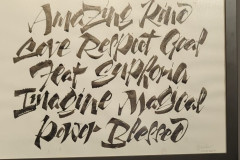 Amazing Kind
Love Respect Goal
Feat
Imagine Magical
Power Blessed